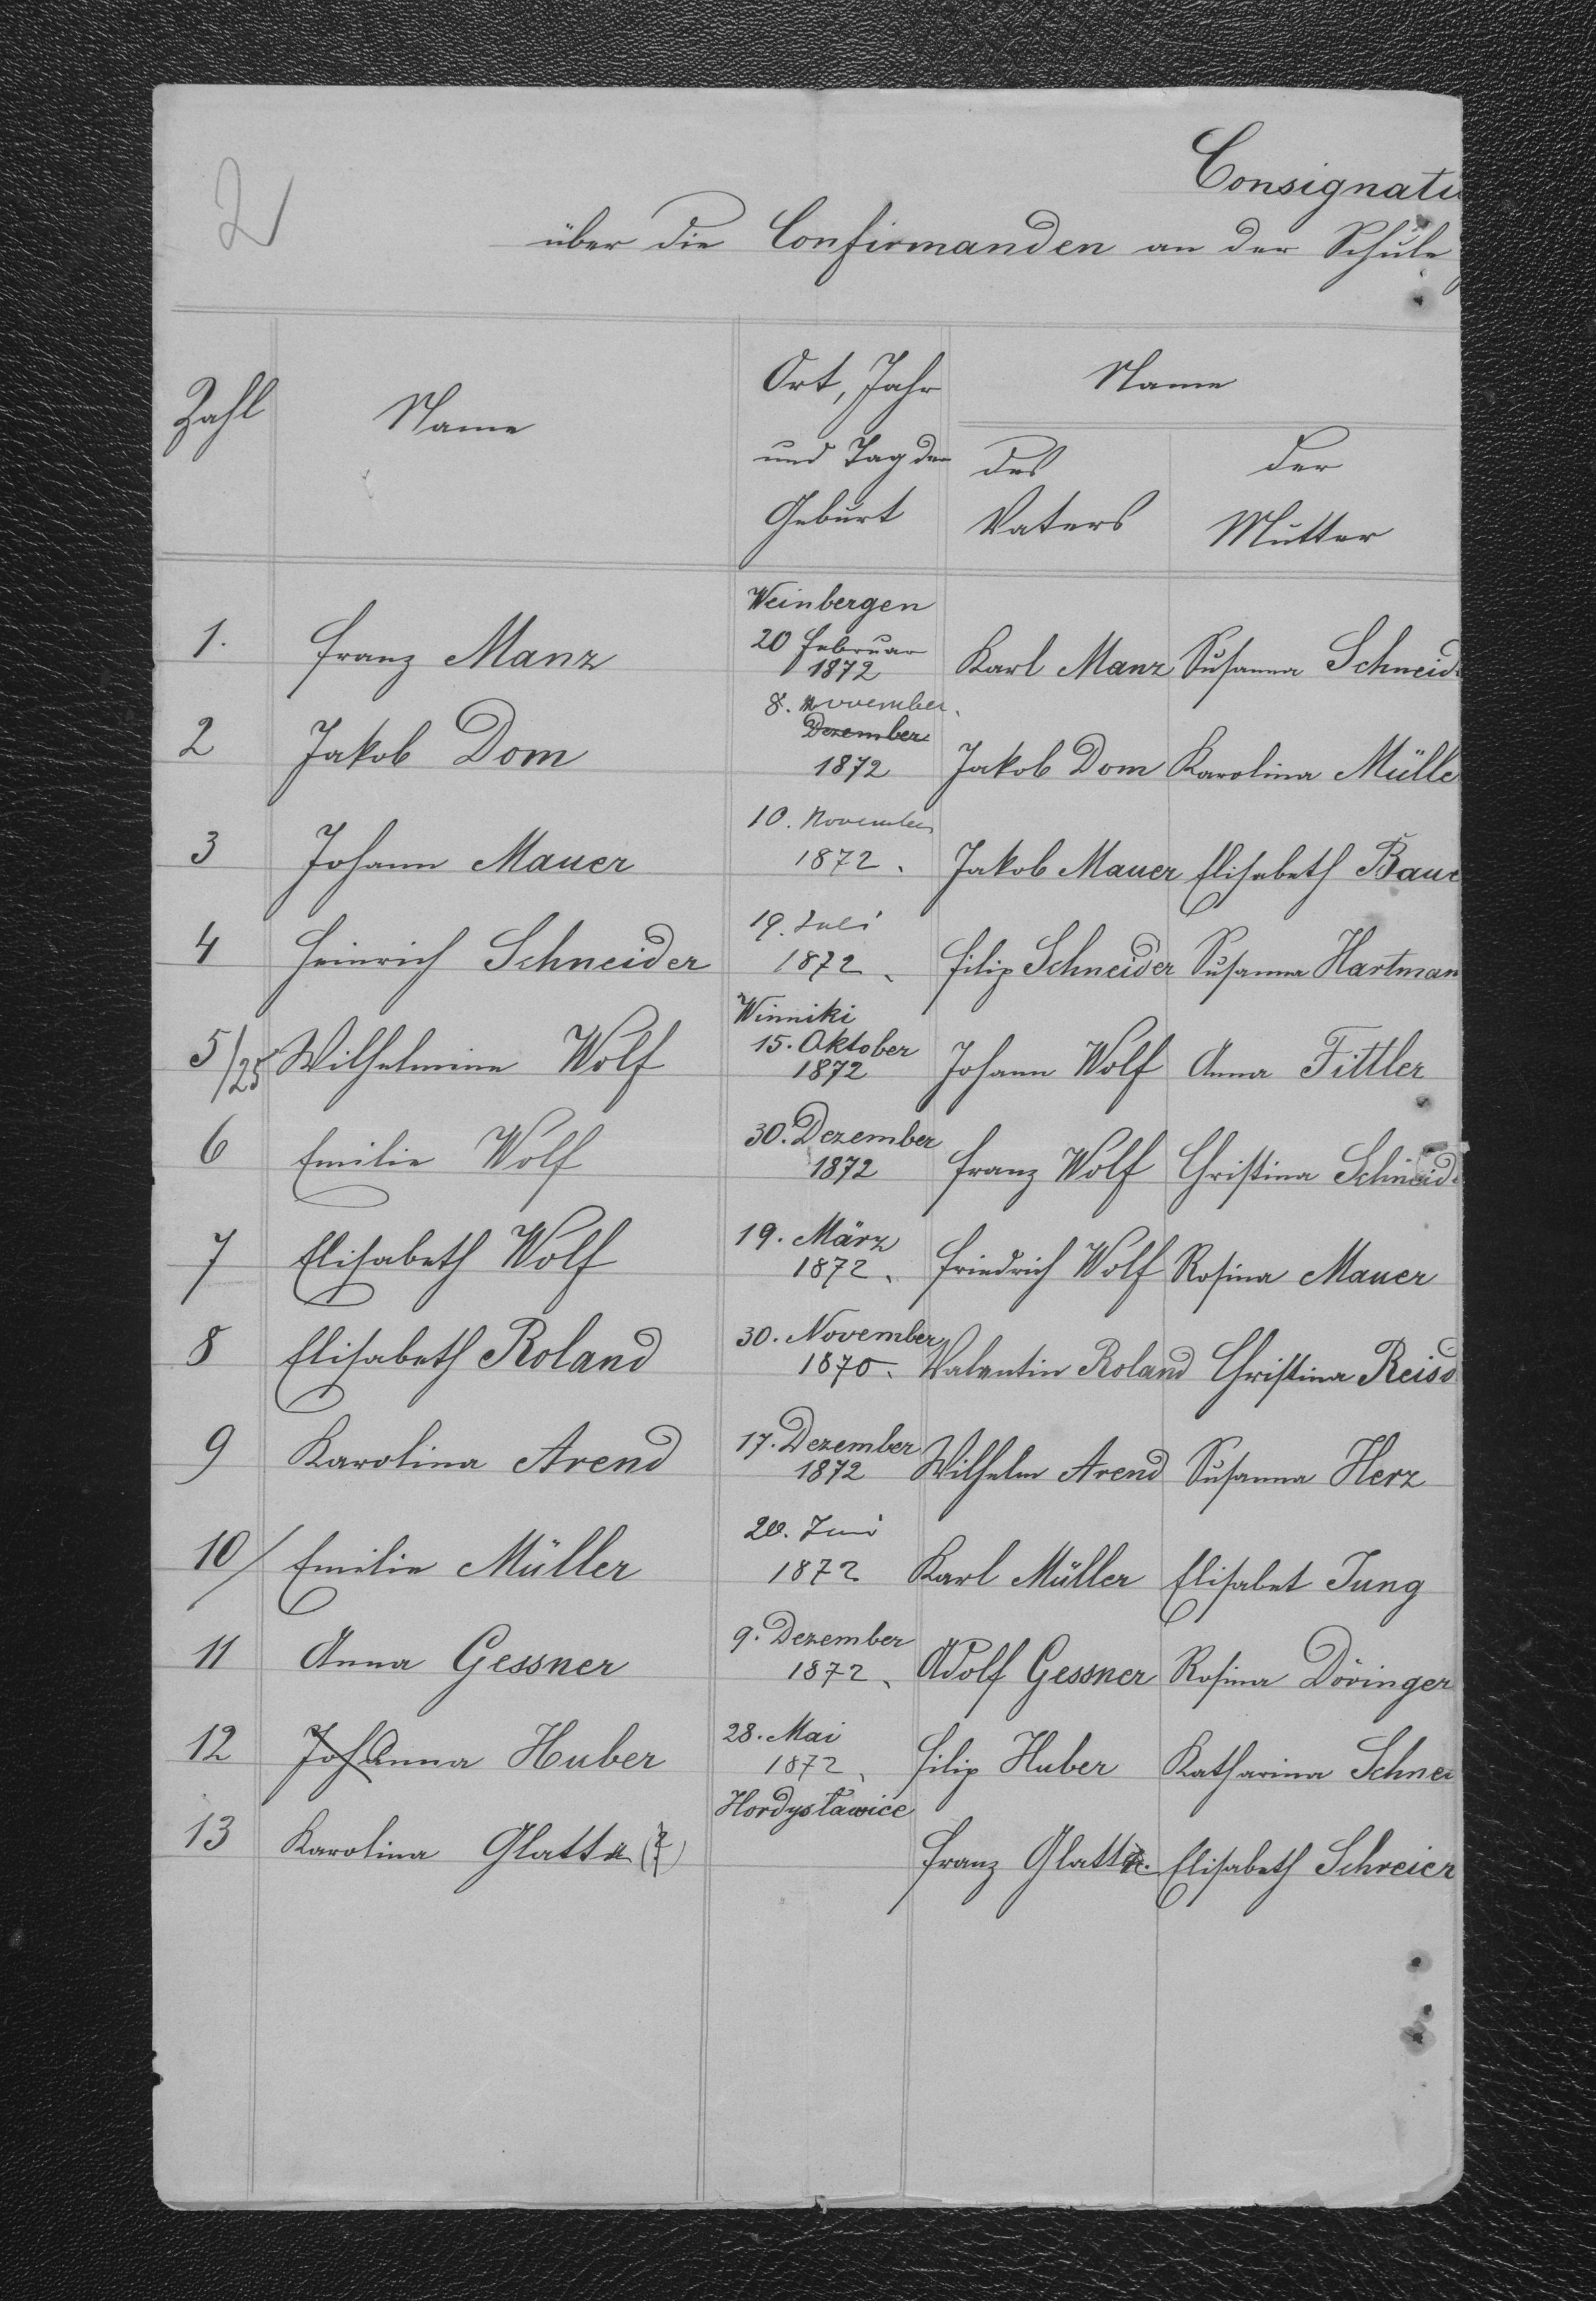 2
über die Confirmanden an der Schule
Zahl
Name
Ort, Jahr
und Tag der
Geburt
Name
des
Vaters
der
Mutter
Weinbergen
1. Franz Manz 20 Februar 1872 Karl Manz Susanna
8. November
2 Jakob Dom Dezember 1872 Jakob Dom Karolina
10. November
3 Johann Mauer 1872. Jakob Mauer Elisabeth
19. Juli
4 Heinrich Schneider 1872. Filip Schneider Susanna Hartman
Winniki
5/25 Wilhelmine Wolf 15. Oktober 1872 Johann Wolf Anna Fittler
6 Emilie Wolf 30. Dezember 1872 Franz Wolf Christina
7 Elisabeth Wolf 19. März 1872. Friedrich Wolf Rosina Mauer
8 Elisabeth Roland 30. November 1870. Valentin Roland Christina
9 Karolina Arend 17. Dezember 1872 Wilhelm Arend Susanna Herz
10/ Emilie Müller Juni 1872 Karl Müller Elisabet Jung
11 Anna Gessner 9. Dezember 1872. Adolf Gessner Rosina Döringer
12 Anna Huber 28. Mai 1872. Filip Huber Katharina
Hordysławice
13 Karolina Franz Elisabeth Schreier